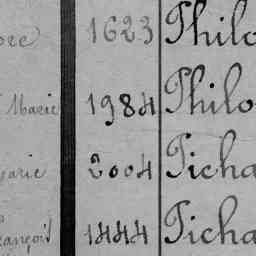 ore 1623 Philo
Marie 1984 Philo
arie 2004 Picha
rançois 1444 Picha